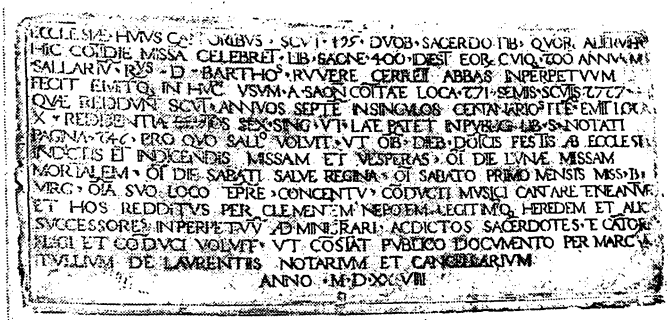 ECCLESIÆ HVIVS CA TORIBVS · SCVT · 195 · DVOB · SACERDOTIB · QVOR
HIC COTIDIE MISSA CELEBRET · LIB · SAONE · 400 · IDEST EOR · CVIQ · 200 ANNVAM
SALLARIV · R VS · D · BARTHO · RVVERE CERRETI ABBAS INPERPETVVM
FECIT EMITQ IN HVC VSVM · A · SAON COITATE LOCA · 271 · SEMIS · SCVTIS 2727
QVÆ REDDVN SCVT ANNVOS SEPTE INSINGVLOS CENTANARIOS ITE EMIT LOCA
X · REDIBENTIA SEX · SING · VT LAE PATET INPVB LIB · S · NOTATI
PAGNA · 746 · PRO QVO SALL VOLVIT · VT OIB DIEB DOICIS FESTIS AB ECCLESIA
INDICTIS ET INDICENDIS MISSAM ET VESPERAS · OI DIE LVNÆ MISSAM
MORTALEM · OI DIE SABATI SALVE REGINA · OI SABATO PRIMO MENSIS MISS · B ·
VIRG · OIA SVO LOCO TEPRE · CONCENTV CODVCTI MVSICI CANTARE TENEANTVR
ET HOS REDDITVS PER CLEMENTEM NEPOTEM LEGITIMQ HEREDEM ET ALIC
SVCCESSORES INPERPETVV ADMINISTRARI AC DICTOS SACERDOTES · E CATOR
ELIGI ET CODVCI VOLVIT · VT COSTAT PVBLICO DOCVMENTO PER MARC
TVLLIVM DE LAVRENTIIS NOTARIVM ET CANCELLARIVM
ANNO · M · D · XX VIII